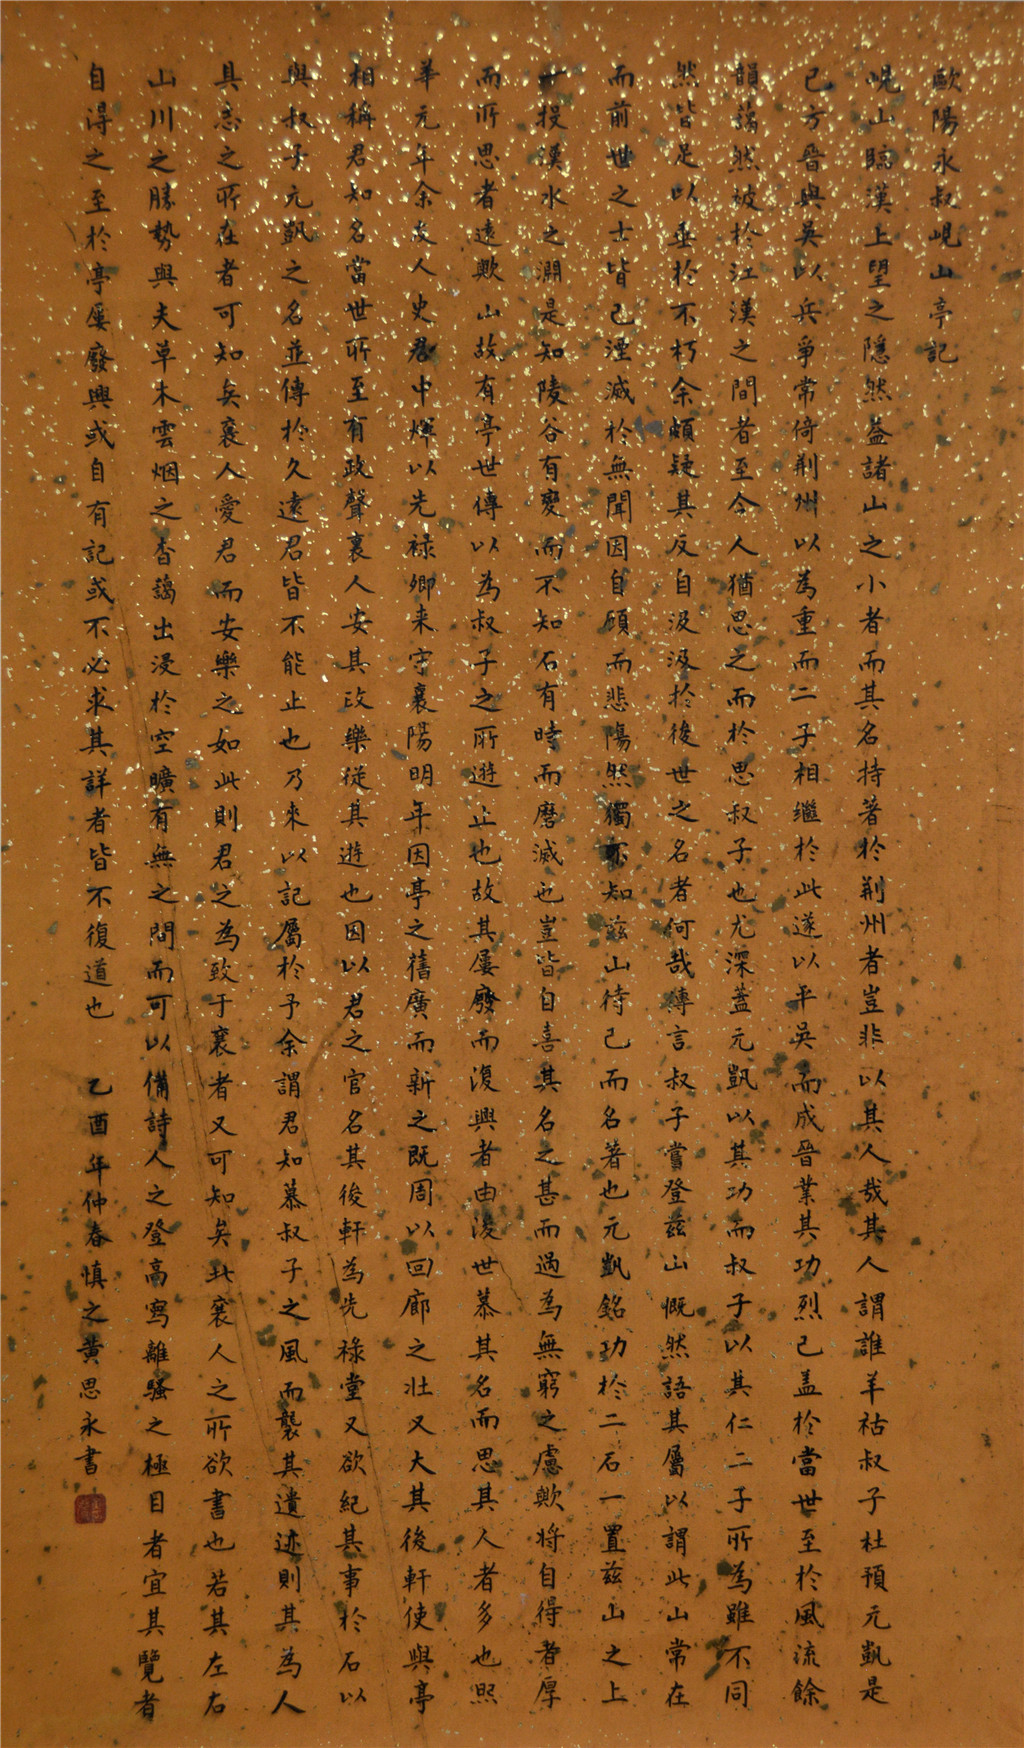 歐陽永叔峴山亭記
峴山臨漢上望之隱然蓋諸山之小者而其名持著於荆州者豈非以其人哉其人謂誰羊祜叔子杜預元凱是
已方晉與吳以兵爭常倚荆州以為重而二子相繼於此遂以平吳而成晉業其功烈已盖於當世至於風流餘
韻藹然被於江漢之間者至今人猶思之而於思叔子也尤深蓋元凱以其功而叔子以其仁二子所為雖不同
然皆足以垂於不朽余頗疑其反自汲汲於後世之名者何哉傳言叔子嘗登兹山慨然語其屬以謂此山常在
而前世之士皆已湮滅於無聞因自頋而悲傷然獨不知兹山待己而名著也元凱銘功於二石一置兹山之上
一投漢水之淵是知陵谷有變而不知石有時而磨滅也豈皆自喜其名之甚而過為無窮之慮歟将自得者厚
而所思者遠歟山故有亭世傳以為叔子之所遊止也故其屢廢而復興者由後世慕其名而思其人者多也熙
華元年余友人史君中煇以先禄卿来守襄陽明年因亭之舊廣而新之既周以回廊之壮又大其後軒使與亭
相稱君知名當世所至有政聲襄人安其政樂從其遊也因以君之官名其後軒為先禄堂又欲紀其事於石以
與叔子元凱之名並傳於久遠君皆不能止也乃來以記屬於予余謂君知慕叔子之風而襲其遺迹則其為人
具志之所在者可知矣襄人愛君而安樂之如此則君之為致于襄者又可知矣此襄人之所欲書也若其左右
山川之勝勢與夫草木雲烟之杳藹出浸於空曠有無之間而可以備詩人之登高寫離騷之極目者宜其覽者
自得之至於亭屢廢興或自有記或不必求其詳者皆不復道也 乙酉年仲春慎之黄思永書